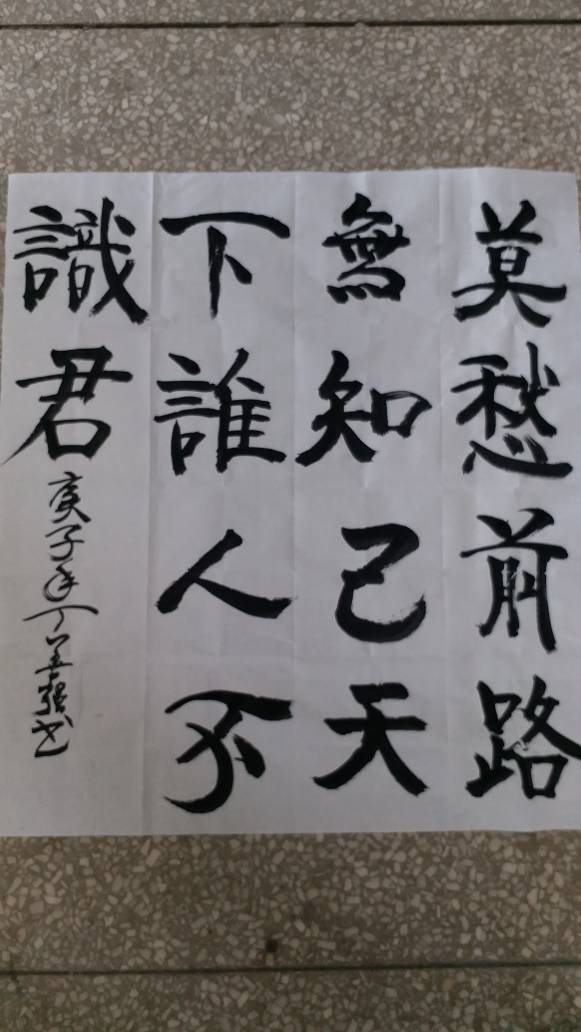 莫愁前路
無知己天
下誰人不
識君
庚子年丁公益強书